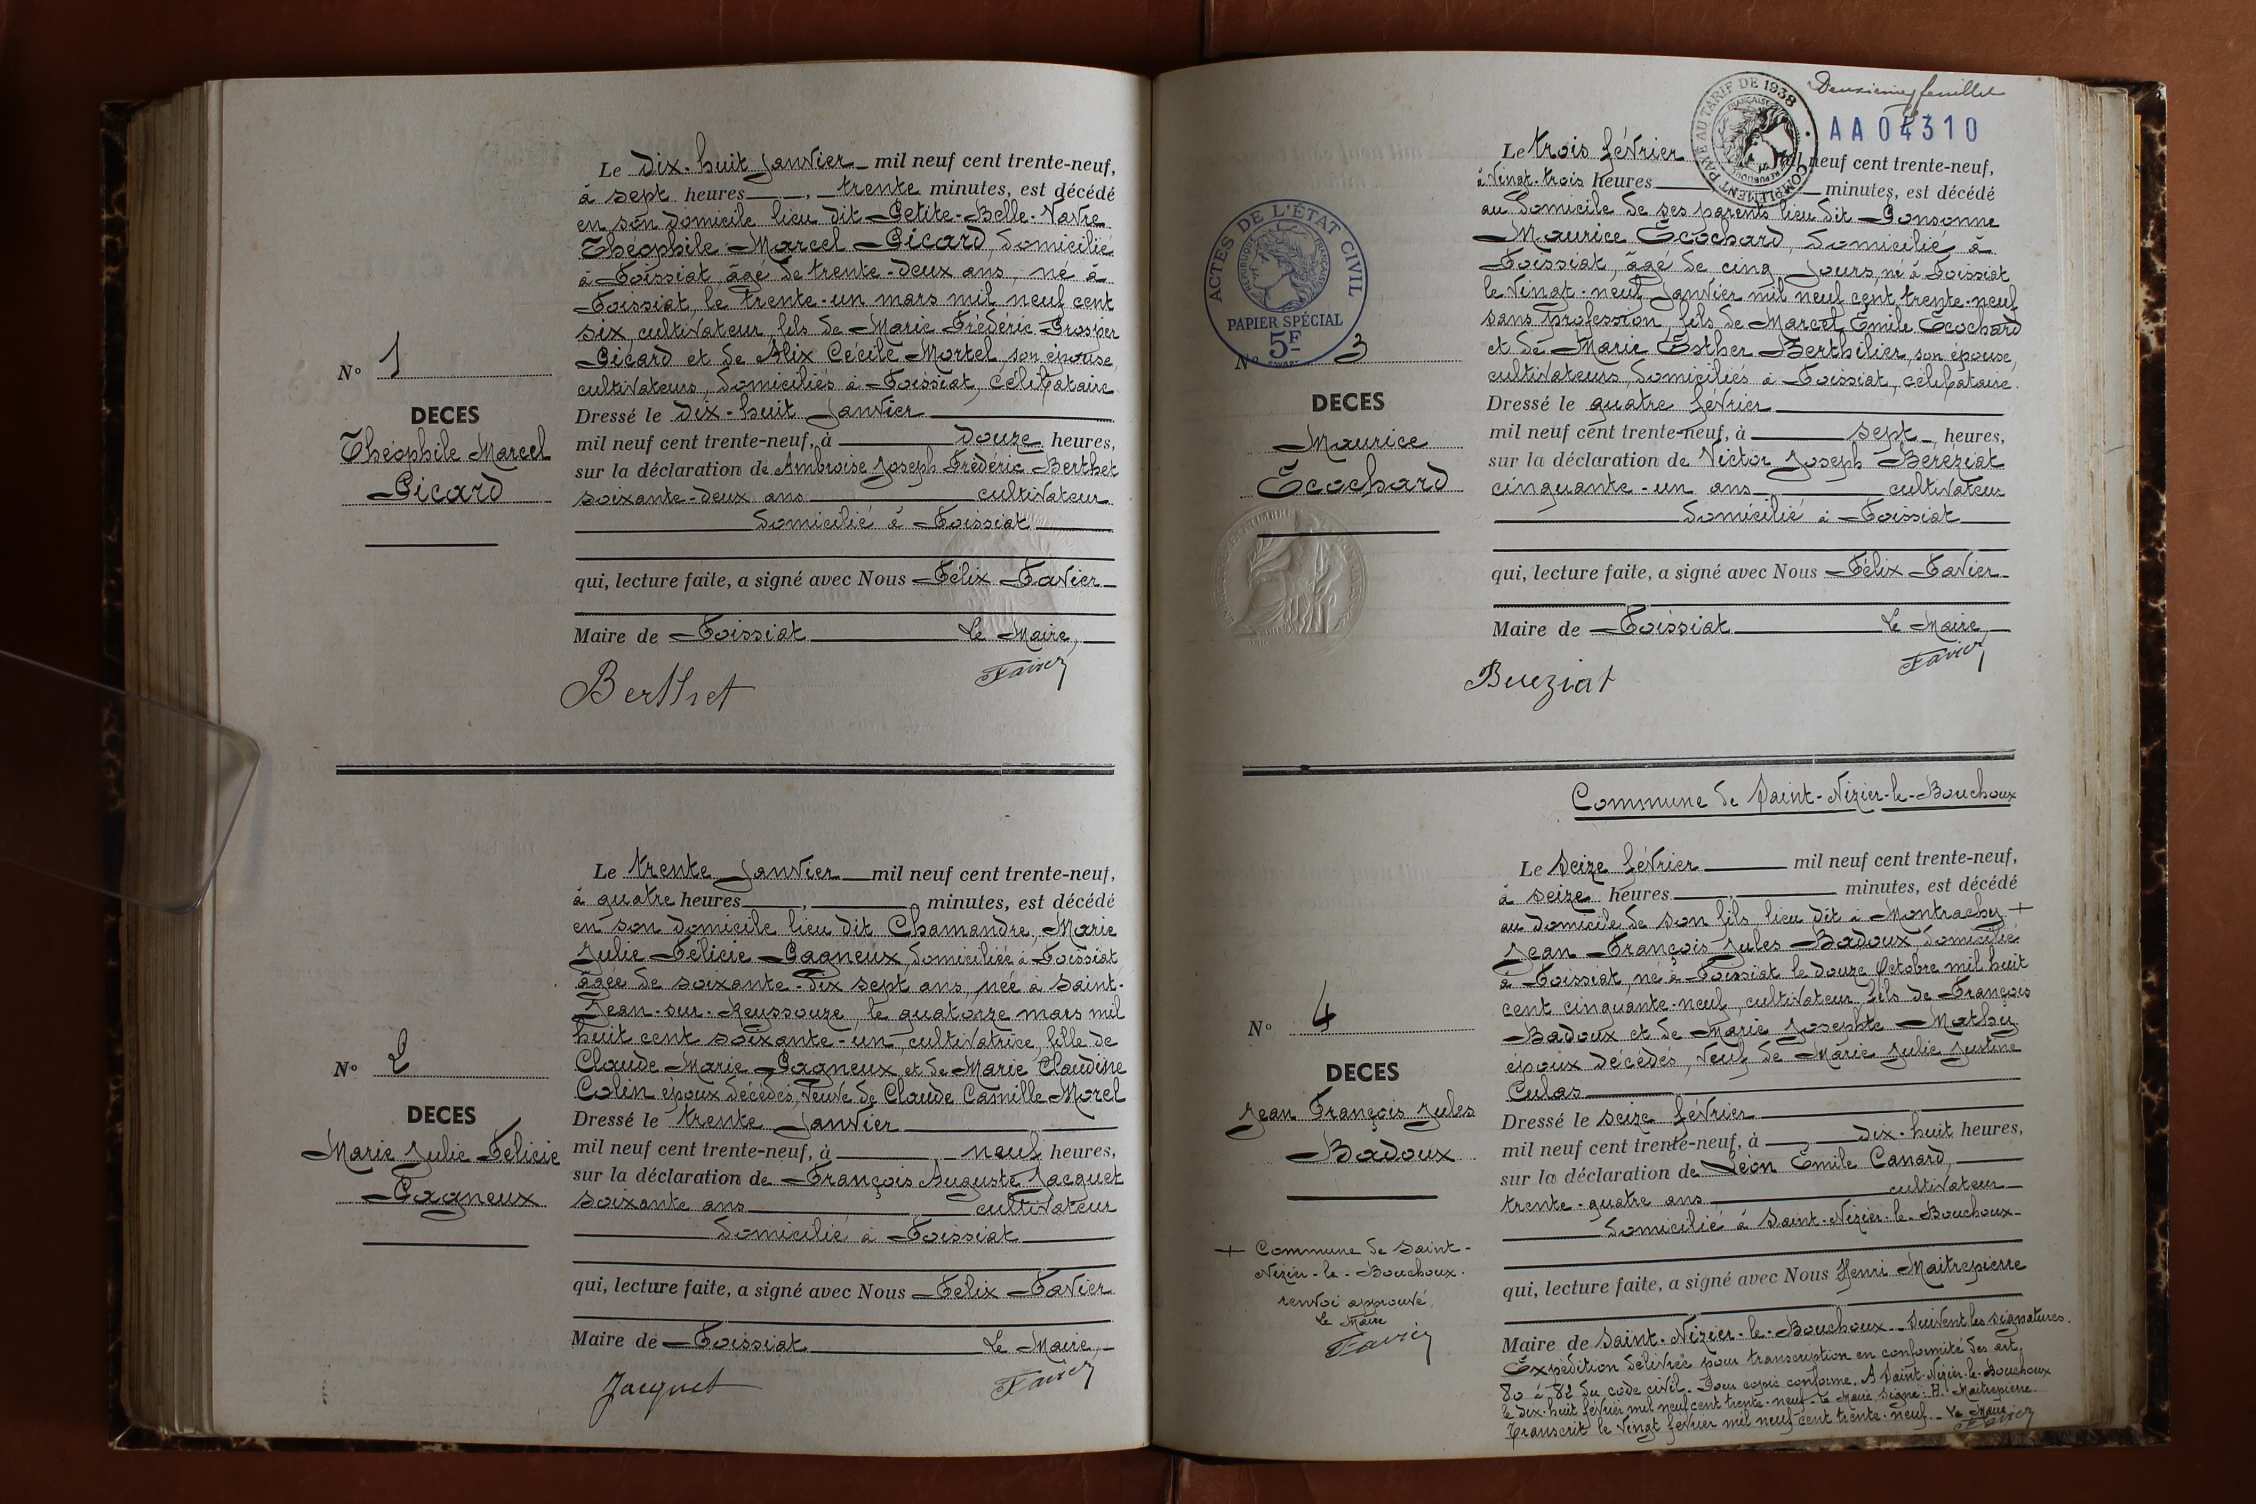 Le dix-huit janvier mil neuf cent trente-neuf,
à sept heures, trente minutes, est décédé
en son domicile lieu dit Petite-Belle-Navre
Théophile Marcel Picard, domicilié
à Foissiat, âgé de trente-deux ans, né à
Foissiat, le trente-un mars mil neuf cent
six, cultivateur, fils de Marie Frédéric Prosper
Picard et de Alix Cécile Mortel, son épouse,
cultivateurs, domiciliés à Foissiat, célibataire.
Dressé le dix-huit janvier
mil neuf cent trente-neuf, à douze heures,
sur la déclaration de Ambroise Joseph Frédéric Berthet
soixante-deux ans cultivateur
domicilié à Foissiat
qui, lecture faite, a signé avec Nous Félix Favier
Maire de Foissiat Le Maire,
Berthet Favier
No 1
DECES
Théophile Marcel
Picard
Le trente janvier mil neuf cent trente-neuf,
à quatre heures, minutes, est décédé
en son domicile lieu dit Chamandre, Marie
Julie Félicie Gagneux, domiciliée à Foissiat
âgée de soixante-dix sept ans, née à Saint-
Jean-sur-Reyssouze, le quatorze mars mil
huit cent soixante-un, cultivatrice, fille de
Claude Marie Gagneux et de Marie Claudine
Colin époux décédés, Veuve de Claude Camille Morel
Dressé le trente janvier
mil neuf cent trente-neuf, à neuf heures,
sur la déclaration de François Auguste Jacquet
soixante ans cultivateur
domicilié à Foissiat
qui, lecture faite, a signé avec Nous Félix Favier
Maire de Foissiat Le Maire,
Jacquet Favier
No 2
DECES
Marie Julie Félicie
Gagneux
Deuxième feuillet
AA 04310
COMPLÉMENT PAYÉ AU TARIF DE 1938
RÉPUBLIQUE FRANÇAISE
Le trois février mil neuf cent trente-neuf,
à vingt-trois heures minutes, est décédé
au domicile de ses parents lieu dit Gonsonne
Maurice Ecochard, domicilié à
Foissiat, âgé de cinq jours, né à Foissiat
le vingt-neuf janvier mil neuf cent trente-neuf
sans profession, fils de Marcel Emile Ecochard
et de Marie Esther Berthilier, son épouse,
cultivateurs, domiciliés à Foissiat, célibataire.
Dressé le quatre février
mil neuf cent trente-neuf, à sept heures,
sur la déclaration de Victor Joseph Bereziat
cinquante-un ans cultivateur
domicilié à Foissiat
qui, lecture faite, a signé avec Nous Félix Favier
Maire de Foissiat Le Maire,
Bereziat Favier
ACTES DE L'ÉTAT CIVIL
RÉPUBLIQUE FRANÇAISE
PAPIER SPÉCIAL
5F
No 3
DECES
Maurice
Ecochard
Commune de Saint-Nizier-le-Bouchoux
Le seize février mil neuf cent trente-neuf,
à seize heures minutes, est décédé
au domicile de son fils lieu dit à Montrachy +
Jean François Jules Badoux domicilié
à Foissiat, né à Foissiat le douze Octobre mil huit
cent cinquante-neuf, cultivateur, fils de François
Badoux et de Marie Josephte Mathy
époux décédés, Veuf de Marie Julie Justine
Culas
Dressé le seize février
mil neuf cent trente-neuf, à dix-huit heures,
sur la déclaration de Léon Emile Canard,
trente-quatre ans cultivateur
domicilié à Saint-Nizier-le-Bouchoux
qui, lecture faite, a signé avec Nous Henri Maitrepierre
Maire de Saint-Nizier-le-Bouchoux. Suivent les signatures.
Expédition délivrée pour transcription en conformité des art.
80 à 82 du code civil. Pour copie conforme. A Saint-Nizier-le-Bouchoux
le dix-huit février mil neuf cent trente-neuf. Le Maire signé: H. Maitrepierre
Transcrit le vingt février mil neuf cent trente-neuf. Le Maire
Favier
No 4
DECES
Jean François Jules
Badoux
+ Commune de Saint-
Nizier-le-Bouchoux.
renvoi approuvé.
Le Maire
Favier